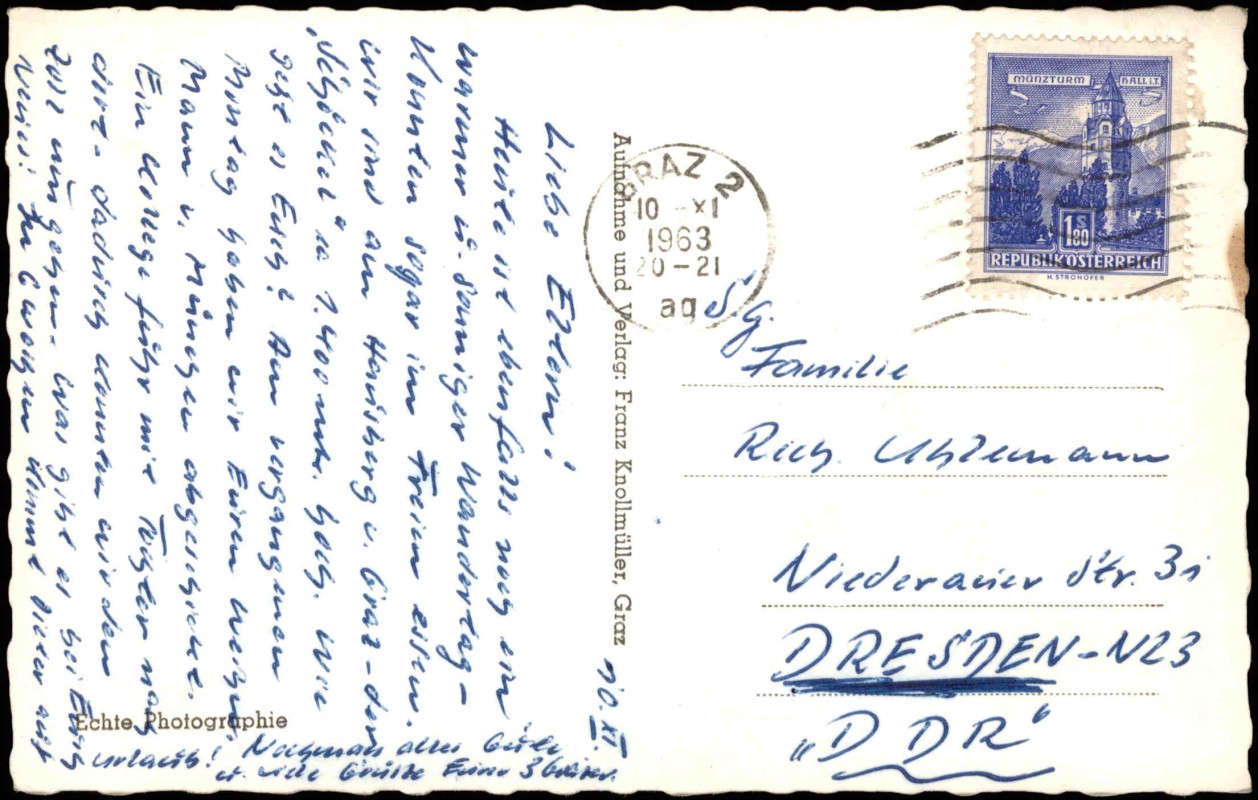 Liebe Eltern!
Heute ist ebenfalls noch ein
warmer u. sonniger Wandertag -
Konnten sogar im Freien essen.
wir sind am Hausberg v. Graz - dem
„Schöckel“ ca 1.400 mtr. hoch. Wie
geht es Euch? Am vergangenen
Montag haben wir Euren
Mann v. München abgeschickt.
Ein Kollege fuhr mit Tochter nach
dort - dadurch konnten wir den
Zoll umgehen. Was gibt es bei Euch
Neues? In 6 Wochen kommt Dieter auf
Urlaub! Nochmals alles Gute
u. viele Grüße Eure 3 Grazer.
10. XI.
Echte Photographie
Aufnahme und Verlag: Franz Knollmüller, Graz
GRAZ 2
10 - XI
1963
20 - 21
ag
MÜNZTURM HALL i.T.
1 S 80
REPUBLIK ÖSTERREICH
H. STROHOFER
S.g.
Familie
Rich. Uhlemann
Niederauer Str. 31
DRESDEN - N23
„DDR“